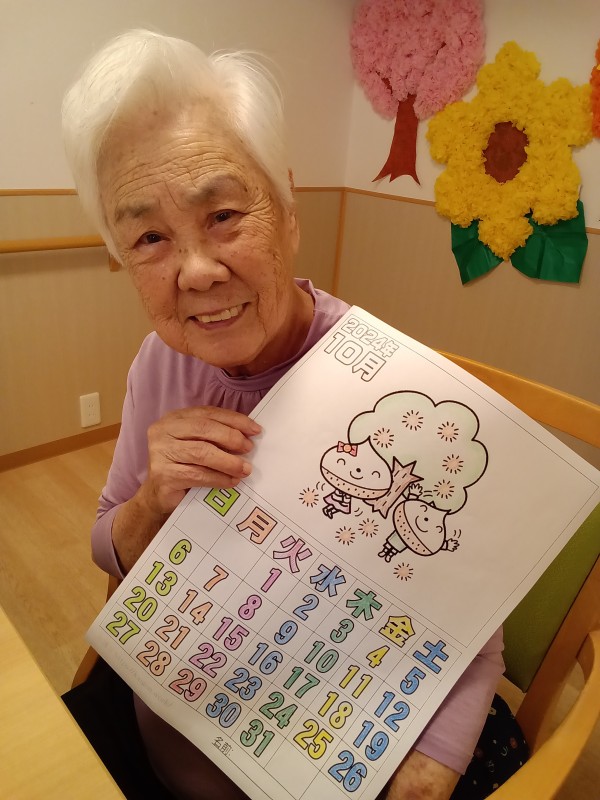 2024年
10月
日 月 火 水 木 金 土
1 2 3 4 5
6 7 8 9 10 11 12
13 14 15 16 17 18 19
20 21 22 23 24 25 26
27 28 29 30 31
名前